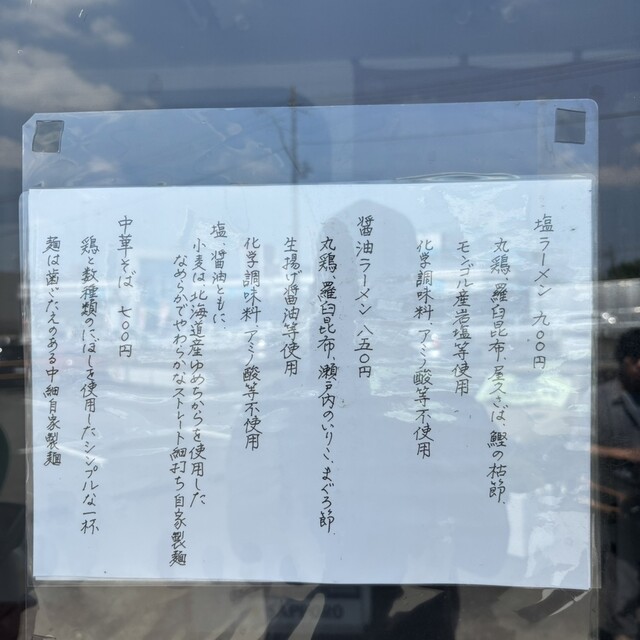 塩ラーメン 九〇〇円
丸鶏、羅臼昆布、屋久さば、鰹の枯節、
モンゴル産岩塩等使用
化学調味料、アミノ酸等不使用
醤油ラーメン 八五〇円
丸鶏、羅臼昆布、瀬戸内のいりこ、まぐろ節、
生揚げ醤油等使用
化学調味料、アミノ酸等不使用
塩、醤油ともに、
小麦は北海道産ゆめちからを使用した
なめらかでやわらかなストレート細打ち自家製麺
中華そば 七〇〇円
鶏と数種類のにぼしを使用したシンプルな一杯
麺は歯ごたえのある中細自家製麺